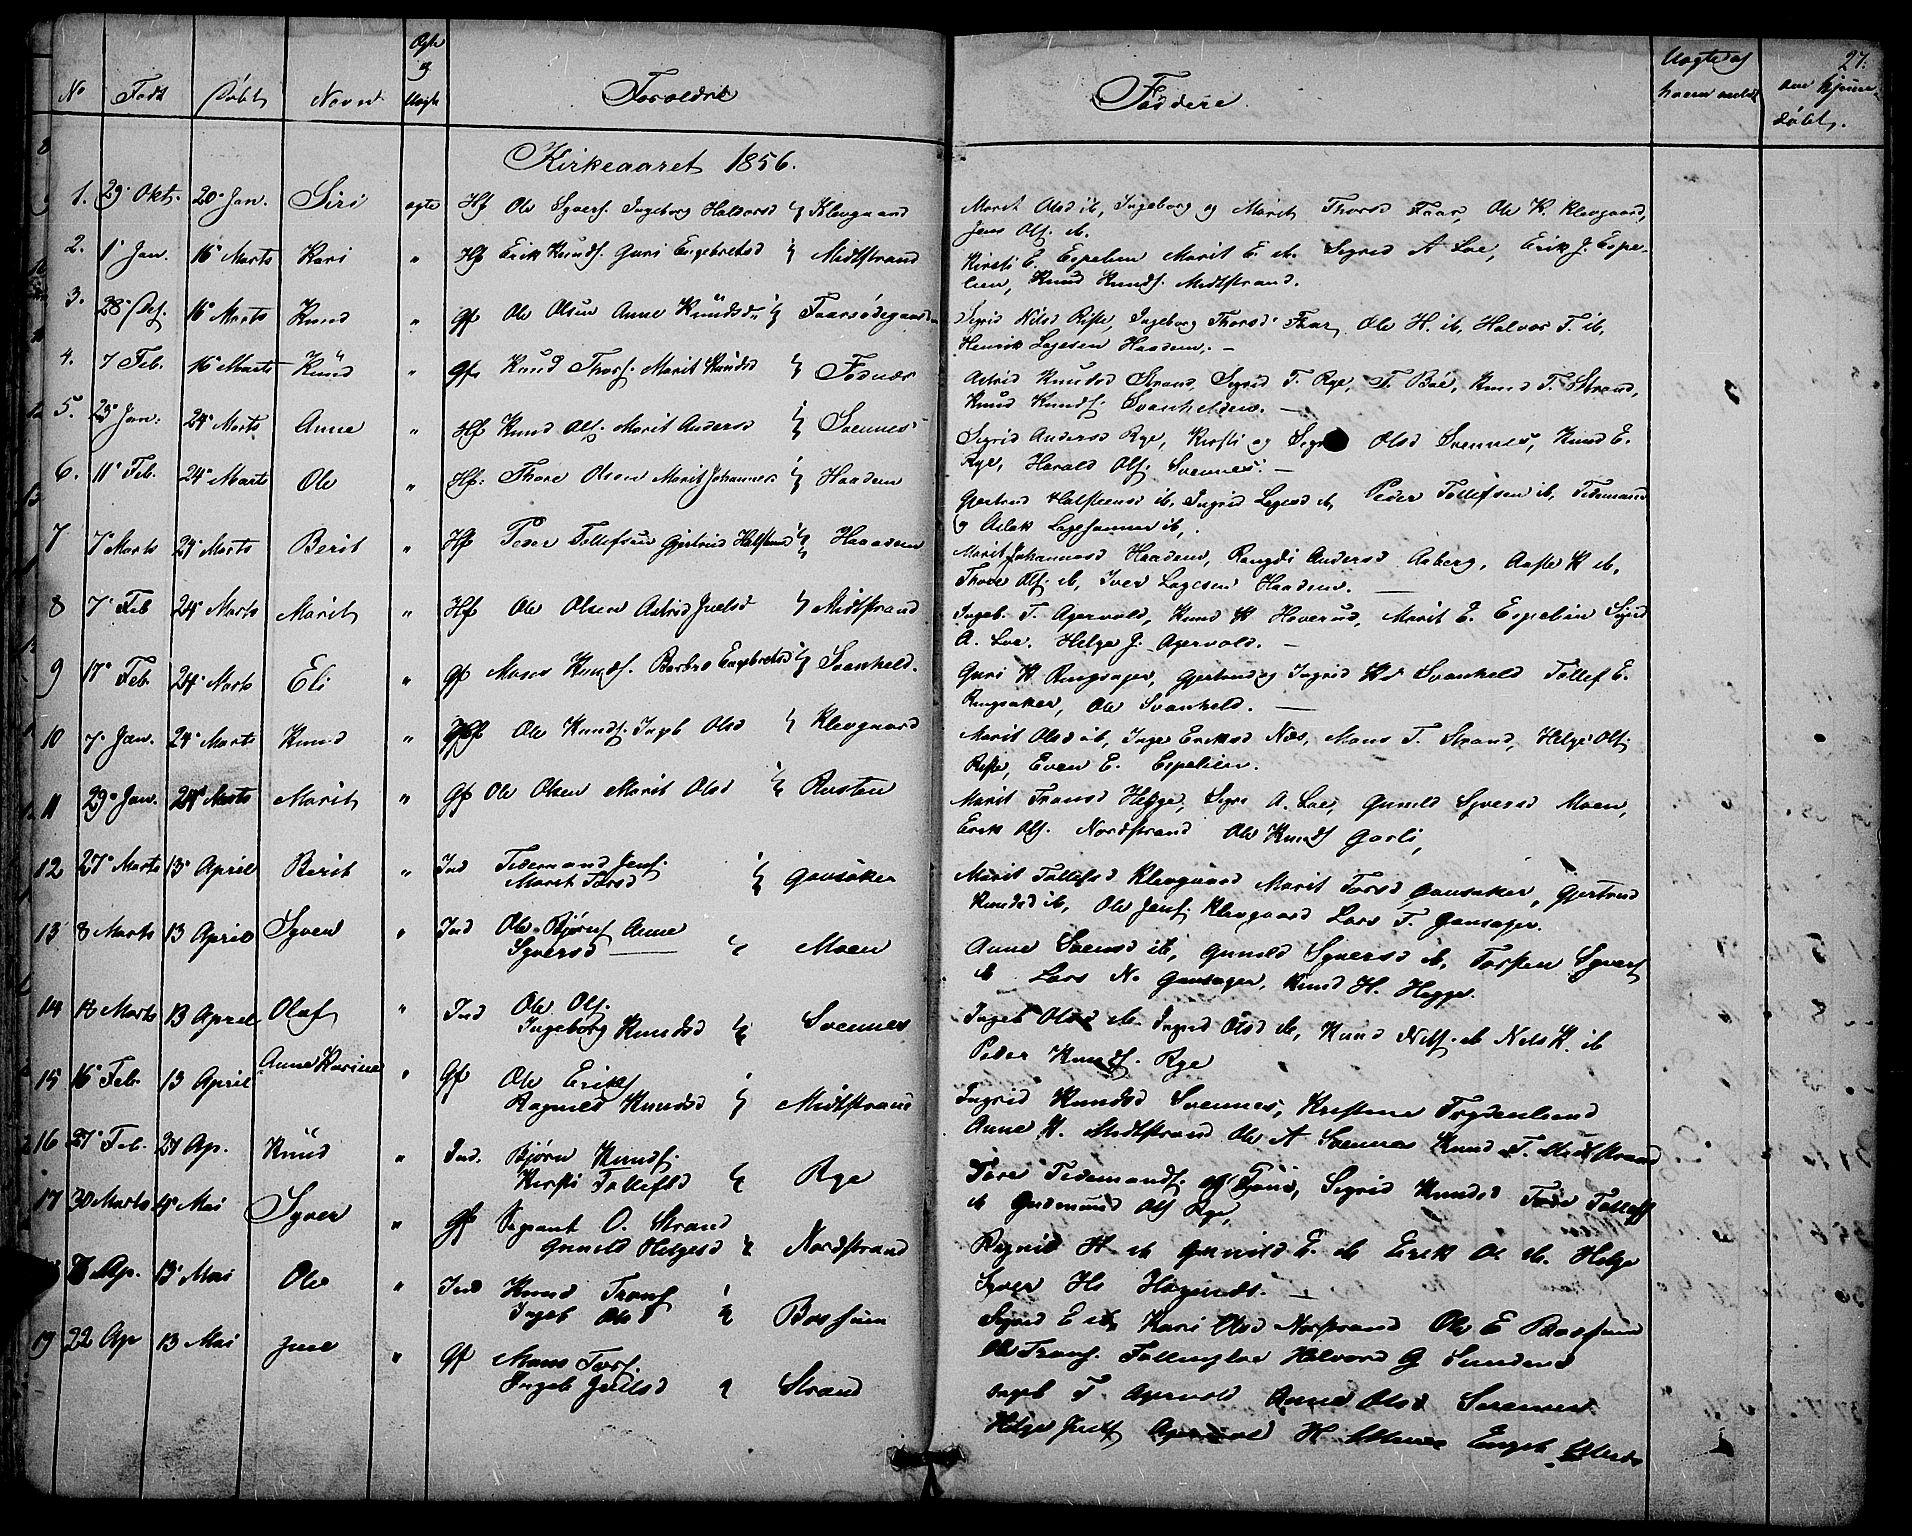 27.
No Født Døbt Navn Ægte og Uægte Forældre Faddere
Kirkeaaret 1856.
1. 29 Okt. 20 Jan. Siri ægte Hf Ole Syvers. Ingeborg Haldorsd Klevgaard
Marit Olsd ib, Ingeborg og Marit Thorsd Faar, Ole K. Klevgaard,
Jens Ols. ib.
2. 1 Jan. 16 Marts Kari " Hf Erik Knuds. Guri Engebretsd Midtstrand
Kirsti E. Espelien Marit E. ib. Sigrid A Loe, Erik J. Espe-
lien, Knud Knuds. Midtstrand.
3. 28 16 Marts Knud " Gf Ole Olsen Anne Knudsd
Sigrid Nilsd Riste, Ingeborg Thorsd Faar, Ole H. ib, Halvor T. ib,
Henrik Lagesen Haadem. —
4. 7 Feb. 16 Marts Knud " Gf Knud Thors. Marit Knudsd Fodnæs
Astrid Knudsd Strand, Sigrid T. Rye, T. Bøe, Knud T. Strand,
Knud Knuds. Svanhelden. —
5. 23 Jan. 24 Marts Anne " Hf Knud Ols. Marit Andersd Svennes
Sigrid Andersd Rye, Kirsti og Olsd Svennes, Knud E.
Rye, Harald Ols. Svennes. —
6. 11 Feb. 24 Marts Ole " Hf. Thore Olsen Marit Johannesd Haadem
Gjertrud Halsteensd ib, Ingrid Lagesd ib, Peder Tollefsen ib, Tidemand
og Aslak ib,
7 7 Marts 24 Marts Berit " Hf Peder Tollefsen Gjertrud Haadem
Marit Johannesd Haadem, Rangdi Andersd Aaberg, K ib,
Thore Ols. ib, Iver Lagesen Haadem. —
8 7 Feb 24 Marts Marit " Hf Ole Olsen Astrid Juelsd Midtstrand
Ingeb. T. Agervold, Knud K Hoverud, Marit E. Espelien Sigrid
A. Loe. Helge J. Agervold. —
9 17 Feb. 24 Marts Eli " Gf Moses Knuds. Barbro Engebretsd Svanheld.
Guri K Ringsager, Gjertrud og Ingrid Svanheld Tollef E.
Ringsaker, Ole Svanheld. —
10 7 Jan. 24 Marts Knud " Ole Knuds. Ingb Olsd Klevgaard
Marit Olsd ib, Inge Eriksd Næs, Mons T. Strand, Helge Ols.
Riste, Even E. Espelien.
11 29 Jan. 24 Marts Marit " Gf Ole Olsen Marit Olsd Rusten
Marit Fransd Hegge, A. Loe, Gunild Syversd Moen,
Erik Ols. Nordstrand Ole Knuds Garli,
12 27 Marts 13 April Berit " Ind Tidemand Jens. Gausaker
Marit Torsd
Marit Tollefsd Klevgaard Marit Torsd Gausaker, Gjertrud
Knudsd ib, Ole Jens. Klevgaard Lars T. Gausager.
13 8 Marts 13 April Syver " Ind Ole Bjørns Anne
Syversd — Moen
Anne Svensd ib, Gunild Syversd ib, Torsten Syvers
ib Lars N. Gausager, Knud H. Hegge.
14 18 Marts 13 April Olaf " Ind Ole Ols.
Ingeborg Knudsd Svennes
Ingeb Olsd ib. Ingrid Olsd ib, Knud Nils. ib Nils K. ib
Peder Knuds. Rye
15 16 Feb. 13 April Anne Karine " Gf Ole Eriks
Ragnild Knudsd Midtstrand
Ingrid Knudsd Svennes, Kristine Frydenlund
Anne K. Midtstrand Ole A Svennes Knud T. Midtstrand
16 27 Feb. 27 Ap. Knud " Ind. Bjørn Knuds.
Kirsti Tollefsd Rye
Tore Tidemands. Sigrid Knudsd Tore Tollefs
ib Gudmund Ols Rye,
17 30 Marts Mai Syver " Gf Sergeant O. Strand
Gunild Helgesd Nordstrand
Ragnild H. ib Gunild E. ib Erik O. ib. Helge
Syver
Ap. 13 Mai Ole " Ind Knud Trons
Ingeb Ols
Sigrid E ib, Kari Olsd Norstrand Ole E
Ole Trons. Halvord G
19 22 Ap 13 Mai Juel " Gf Mons Tors.
Ingeb Juelsd Strand
Ingeb T. Agervold Anne Olsd Svennes
Helge Juels Agervold H